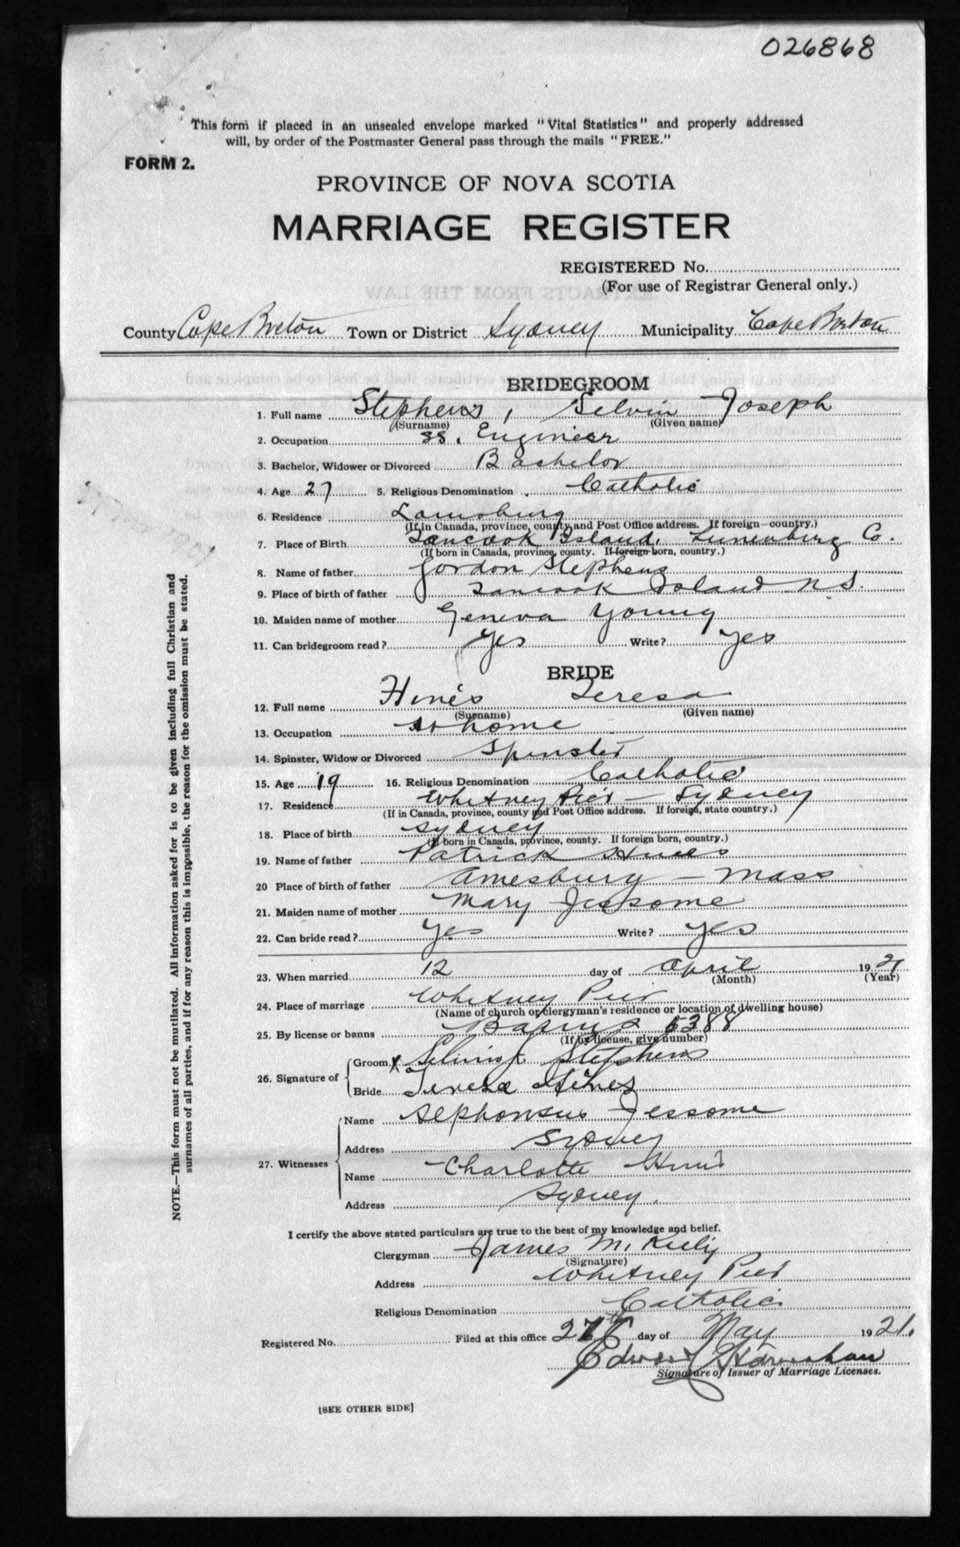 026868
This form if placed in an unsealed envelope marked "Vital Statistics" and properly addressed
will, by order of the Postmaster General pass through the mails "FREE."
FORM 2.
PROVINCE OF NOVA SCOTIA
MARRIAGE REGISTER
REGISTERED No.
(For use of Registrar General only.)
County Cape Breton Town or District Sydney Municipality Cape Breton
BRIDEGROOM
1. Full name Stephens, Selvin Joseph
(Surname) (Given name)
2. Occupation SS. Engineer
3. Bachelor, Widower or Divorced Bachelor
4. Age 27 5. Religious Denomination Catholic
6. Residence Louisburg
(If in Canada, province, county and Post Office address. If foreign—country.)
7. Place of Birth Tancook Island, Lunenburg Co.
(If born in Canada, province, county. If foreign born, country.)
8. Name of father Gordon Stephens
9. Place of birth of father Tancook Island N.S.
10. Maiden name of mother Geneva Young
11. Can bridegroom read? Yes Write? Yes
BRIDE
12. Full name Hines Teresa
(Surname) (Given name)
13. Occupation At home
14. Spinster, Widow or Divorced Spinster
15. Age 19 16. Religious Denomination Catholic
17. Residence Whitney Pier — Sydney
(If in Canada, province, county and Post Office address. If foreign, state country.)
18. Place of birth Sydney
(If born in Canada, province, county. If foreign born, country.)
19. Name of father Patrick Hines
20 Place of birth of father Amesbury — Mass
21. Maiden name of mother Mary Jessome
22. Can bride read? Yes Write? Yes
23. When married 12 day of April 1921
(Month) (Year)
24. Place of marriage Whitney Pier
(Name of church or clergyman's residence or location of dwelling house)
25. By license or banns Banns 5388
(If by license, give number)
26. Signature of
Groom X Selvin J Stephens
Bride Teresa Hines
27. Witnesses
Name Alphonsus Jessome
Address Sydney
Name Charlotte Hines
Address Sydney.
I certify the above stated particulars are true to the best of my knowledge and belief.
Clergyman James M. Kiely
(Signature)
Address Whitney Pier
Religious Denomination Catholic
Registered No. Filed at this office 27th day of May 1921.
Edward
Signature of Issuer of Marriage Licenses.
[SEE OTHER SIDE]
NOTE.—This form must not be mutilated. All information asked for is to be given including full Christian and
surnames of all parties, and if for any reason this is impossible, the reason for the omission must be stated.